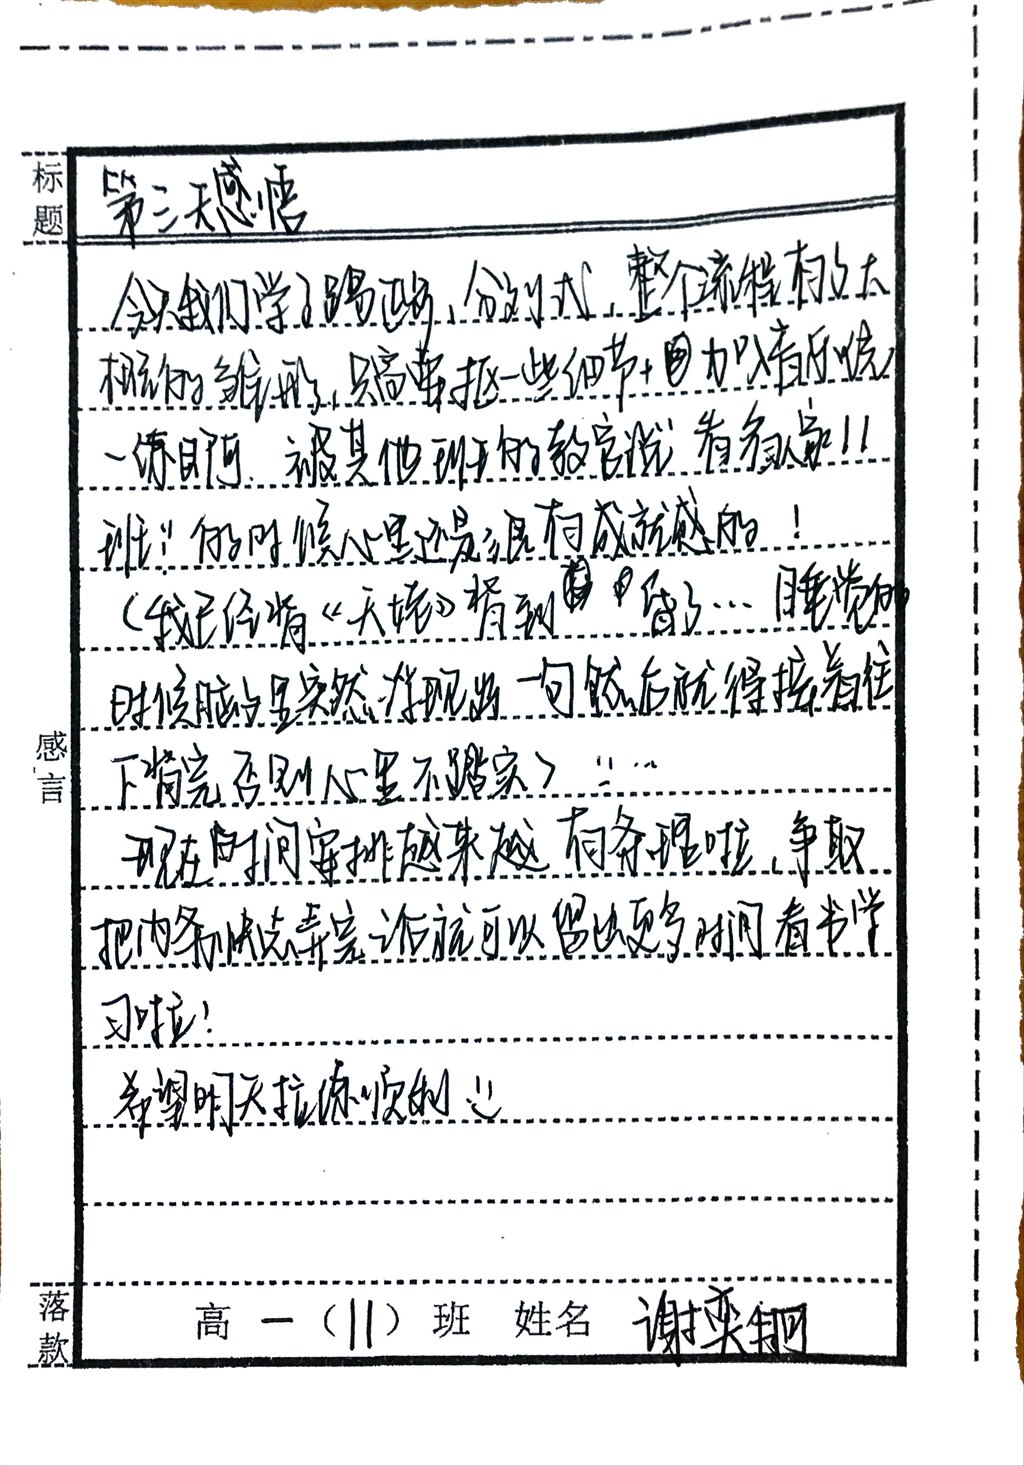 标题
第三天感悟
今天我们学了踢正步、分列式，整个流程有了大
概的雏形，只需要抠一些细节+加以着
一练 被其他班的教官说“看多人家11
班!!”的时候心里还是很有成就感的！
（我已经背《天姥》背到昏了… 睡觉的
时候脑子里突然浮现出一句然后就得接着往
下背完否则心里不踏实）
感言
现在时间安排越来越有条理啦，争取
把内务快点弄完之后就可以留出更多时间看书学
习啦！
希望明天拉练顺利
落款
高一（11）班 姓名 谢奕